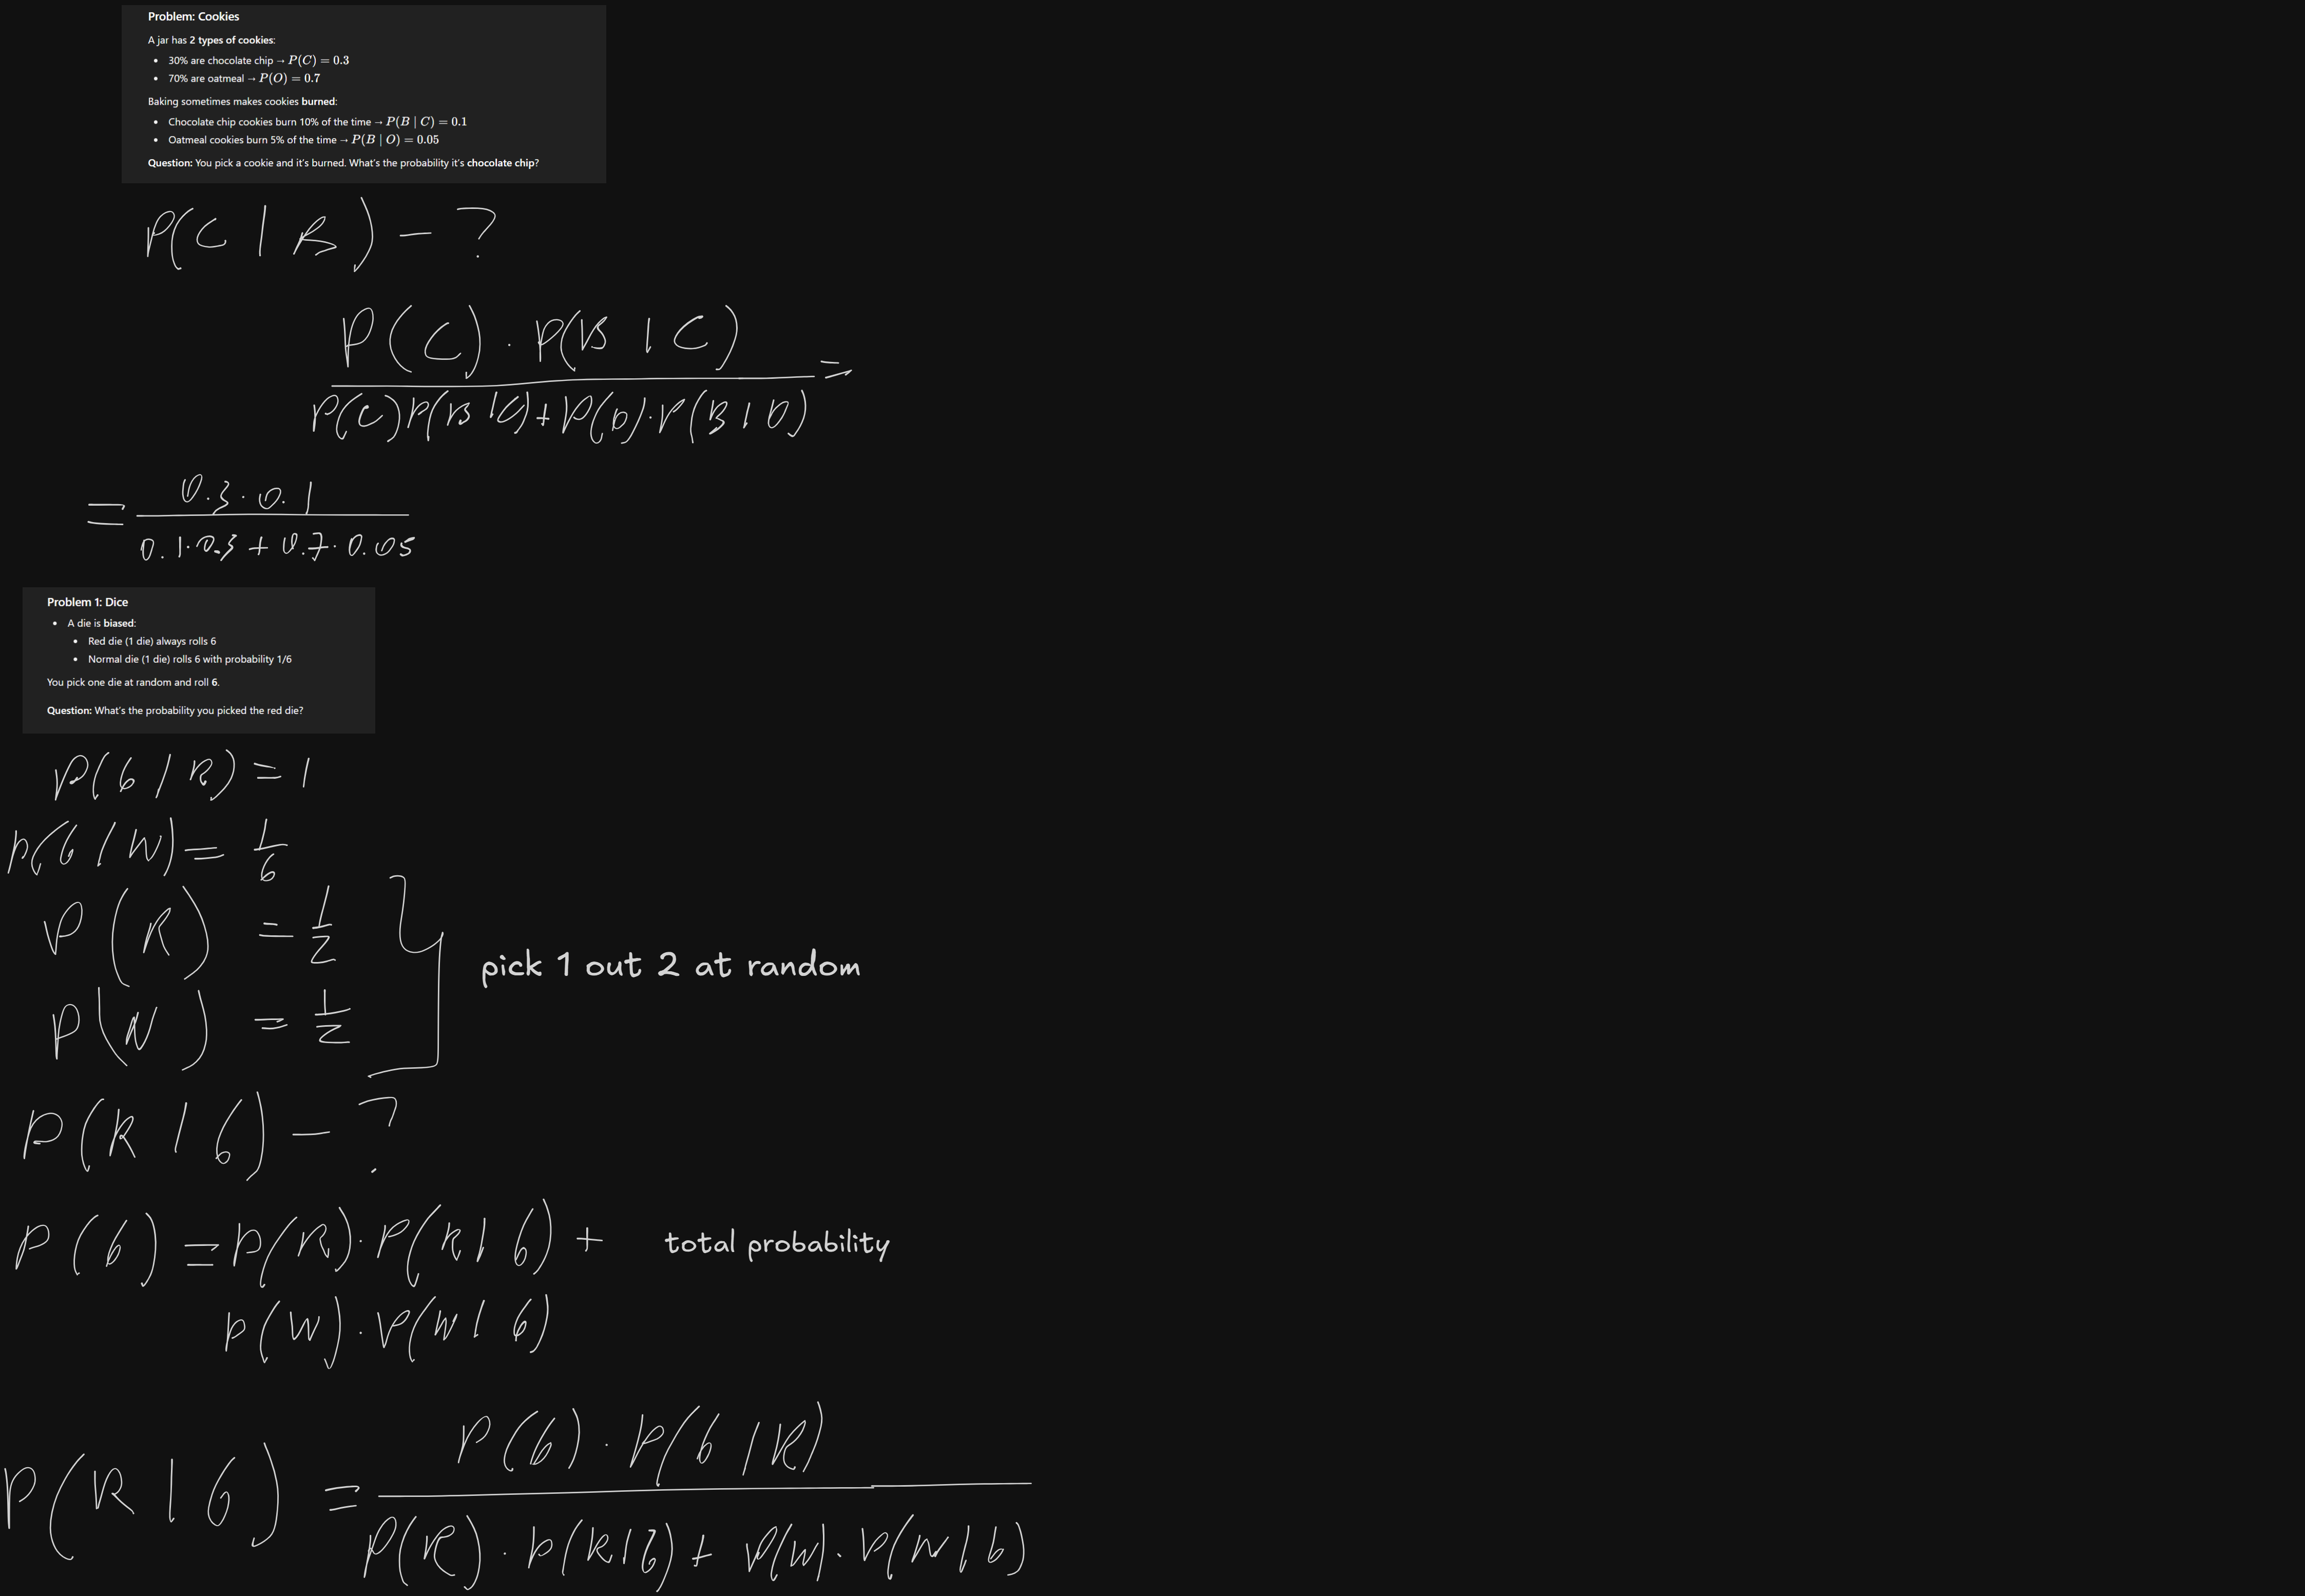 Problem: Cookies
A jar has 2 types of cookies:
• 30% are chocolate chip → P(C) = 0.3
• 70% are oatmeal → P(O) = 0.7
Baking sometimes makes cookies burned:
• Chocolate chip cookies burn 10% of the time → P(B | C) = 0.1
• Oatmeal cookies burn 5% of the time → P(B | O) = 0.05
Question: You pick a cookie and it's burned. What's the probability it's chocolate chip?
P(C | B) - ?
P(C) · P(B | C)
P(C) P(B | C) + P(O) · P(B | O) =
0.3 · 0.1
= 0.1 · 0.3 + 0.7 · 0.05
Problem 1: Dice
• A die is biased:
• Red die (1 die) always rolls 6
• Normal die (1 die) rolls 6 with probability 1/6
You pick one die at random and roll 6.
Question: What's the probability you picked the red die?
P(6 | R) = 1
P(6 | N) = 1/6
P(R) = 1/2
pick 1 out 2 at random
P(N) = 1/2
P(R | 6) - ?
P(6) = P(R) · P(R | 6) + total probability
P(N) · P(N | 6)
P(6) · P(6 | R)
P(R | 6) =
P(R) · P(R | 6) + P(N) · P(N | 6)